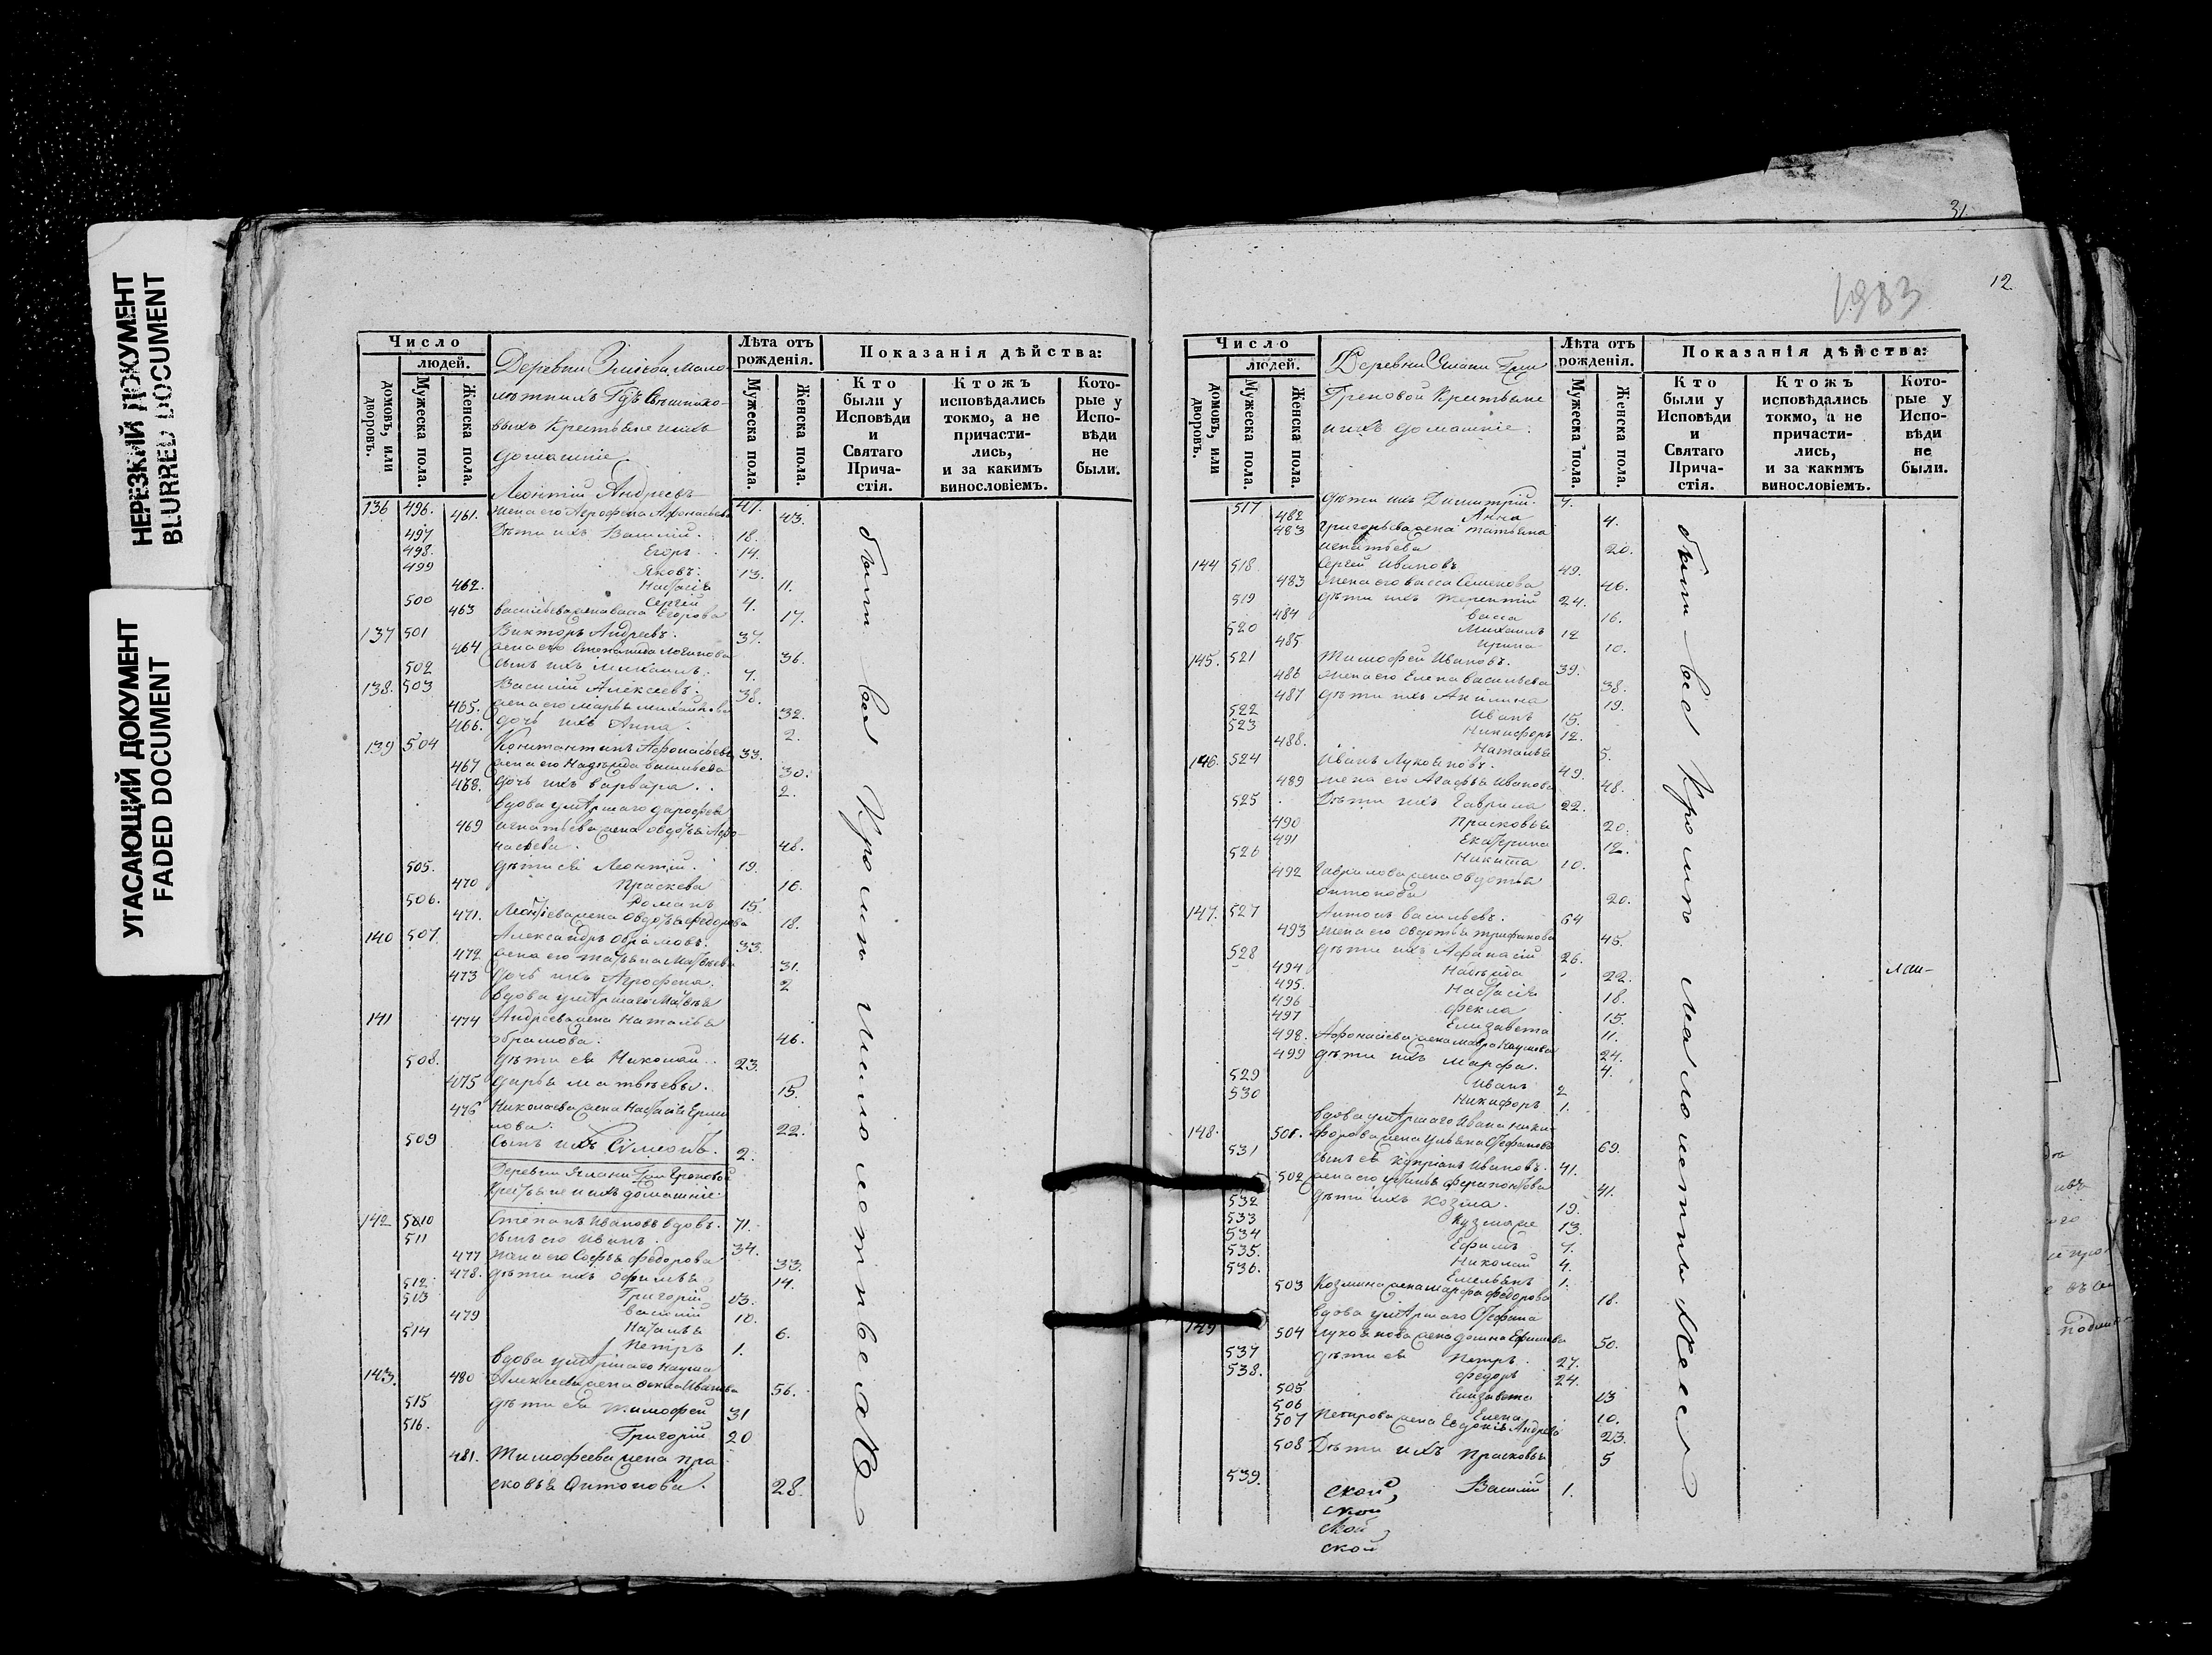 НЕРЕЗКИЙ ДОКУМЕНТ
BLURRED DOCUMENT
УГАСАЮЩИЙ ДОКУМЕНТ
FADED DOCUMENT
Число
людей.
домовъ, или дворовъ.
Мужеска пола.
Женска пола.
Деревни
Крестьяне ихъ
домашніе
Лѣта отъ рожденія.
Мужеска пола.
Женска пола.
Показанія дѣйства:
Кто были у Исповѣди и Святаго Причастія.
Ктожъ исповѣдались токмо, а не причастились, и за какимъ винословіемъ.
Которые у Исповѣди не были.
Леонтій Андреевъ
136 496. 461. жена его Агрофена Афонасьева 47. 43.
497 Дѣти ихъ Василій. 18.
498. Егоръ. 14.
499 Яковъ. 13.
462. Настасія 11.
500 Сергей 4.
463 Васильева жена Васса Егорова 17.
137 501 Викторъ Андреевъ. 37.
464 жена его Степанида Логинова 36.
502 сынъ ихъ Михаилъ.
138. 503 Василій Алексеевъ. 38.
465. жена его Марья Михайлова 32.
466. дочь ихъ Анна. 2.
139 504 Константинъ Афонасьевъ 33.
467 жена его Надѣжда Васильева 30.
468. дочь ихъ Варвара. 2.
вдова умершаго Дорофея
469 Игнатьева жена Овдотья Афо-
насьева. 48.
505. дѣти ея Леонтій. 19.
470 Праскева 16.
506. Романъ 15.
471. Леонтьева жена Овдотья Федорова 18.
140 507. Александръ Обрамовъ. 33.
472 жена его Татьяна Матвѣева 31.
473 дочь ихъ Агрофена. 2
вдова умершаго Матвѣя
141 474 Андреева жена Наталья
Обрамова. 46.
508. дѣти ея Николай. 23.
475 Дарья Матвѣевы. 15.
476 Николаева жена Настасія Ерми
лова. 22.
509 Сынъ ихъ Симеонъ. 2.
Деревни
Крестьяне и ихъ домашніе
142 510 Степанъ Ивановъ вдовъ. 71.
511 сынъ его Иванъ. 34.
477 жена его Софья Федорова 33.
478. дѣти ихъ Офимья 14.
512 Григорій 13.
513 Василій 10.
479 Наталья 6.
514 Петръ 1.
вдова умершаго Наума
143. 480 Алексеева жена Фекла Иванова 56.
515 дѣти ея Тимофей 31
516. Григорій 20
481. Тимофеева жена Пра
сковья Антонова. 28.
были всѣ кромѣ малолетныхъ
31
12.
1933
Число
людей.
домовъ, или дворовъ.
Мужеска пола.
Женска пола.
Деревни
Крестьяне
и ихъ домашніе.
Лѣта отъ рожденія.
Мужеска пола.
Женска пола.
Показанія дѣйства:
Кто были у Исповѣди и Святаго Причастія.
Ктожъ исповѣдались токмо, а не причастились, и за какимъ винословіемъ.
Которые у Исповѣди не были.
517 дѣти ихъ Димитрій.
482 Анна 4.
483 Григорьева жена Татьяна
Игнатьева 20.
144 518 Сергей Ивановъ 49.
483 жена его Васса Семенова 46.
519 дѣти ихъ Терентій 24.
484 Васса 16.
520 Михаилъ 12
485 Ирина 10.
145. 521 Тимофей Ивановъ. 39.
486 жена его Елена Васильева 38.
487 дѣти ихъ Акилина 19.
522 Иванъ 15.
523 Никифоръ 12.
488. Наталья 5.
146. 524 Иванъ Лукояновъ. 49.
489 жена его Агафья Иванова 48.
525 Дѣти ихъ Гаврила 22.
490 Прасковья 20.
491 Екатерина 12.
526 Никита 10.
492 Гаврилова жена Овдотья
Антонова 20.
147. 527 Антонъ Васильевъ. 64
493 жена его Овдотья Трифанова 45.
528 дѣти ихъ Афанасій 26.
494 Надѣжда 22.
495. Настасія 18.
496 Фекла 15.
497 Елизавета 11.
498. Афонасіева жена Мавра Наумова 24.
499 дѣти ихъ Марфа. 4.
529 Иванъ 2
530 Никифоръ 1.
вдова умершаго Ивана Ники-
148. 501. форова жена Ульяна Стефанова 69.
531 сынъ ея Купріанъ Ивановъ. 41.
502 жена его Устинья Ферапонтова 41.
532 дѣти ихъ Козма. 19.
533 Кузма же 13.
534 Ефимъ
535. Николай 4.
536. Емельянъ 1.
503 Козмина жена Марфа Федорова 18.
вдова умершаго Стефана
149 504 Лукоянова жена Домна Ефимова 50.
537 дѣти ея Петръ. 27.
538. Федоръ 24.
505 Елизавета 13
506 Елена 10.
507 Петрова жена Евдокія Андреева 23.
508 Дѣти ихъ Прасковья 5
539. Василій 1.
ской,
ской
ской,
ской
были всѣ кромѣ малолетныхъ